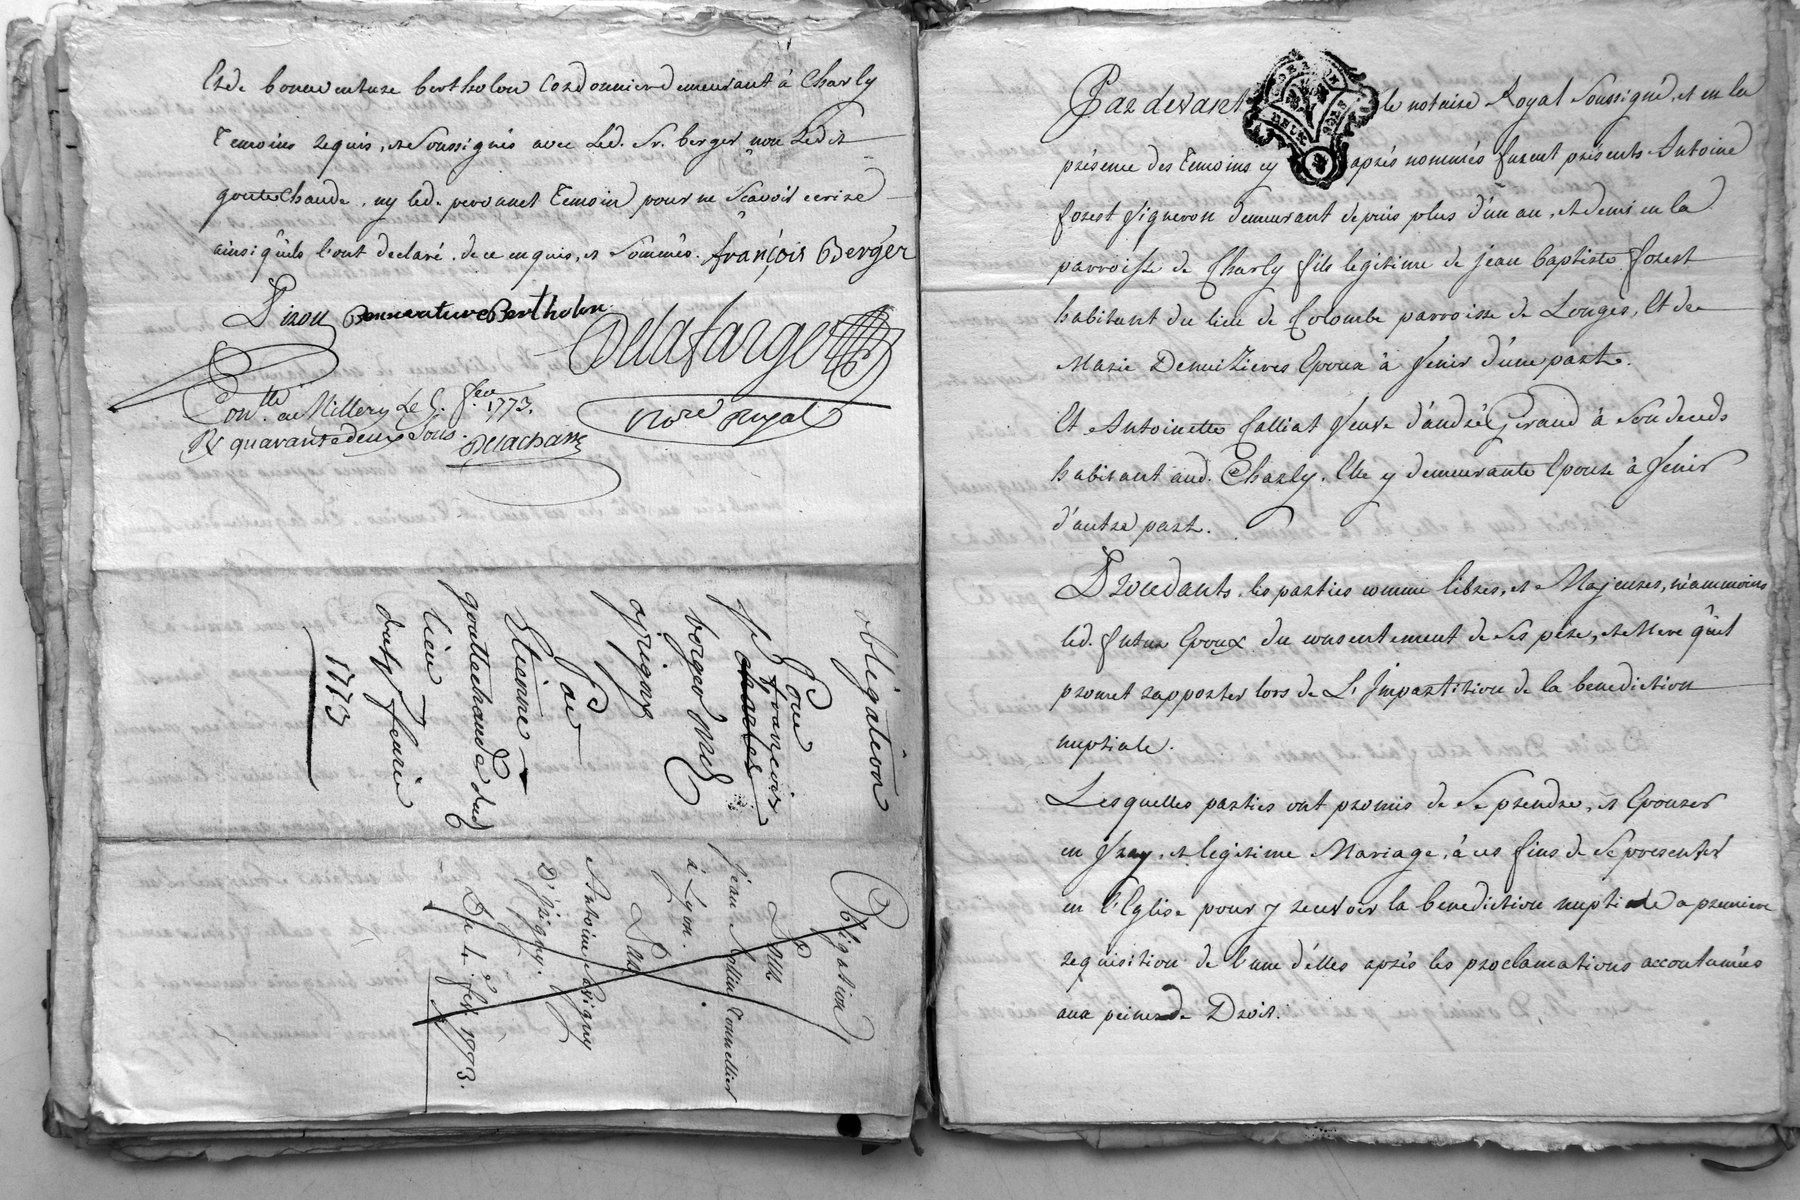 Et de bonneventure bertholon Cordonnier demeurant à Charly
temoins requis, et Soussignés avec Led. Sr. berger non Ledit
goutechaude, ny led. peronnet temoin pour ne Scavoir ecrire
ainsi qu'ils l'ont declaré, de ce enquis, et Sommés. françois Berger
Piron Bonneventure Bertholon
Delafarge
Nore Royal
Conllé a Millery Le 5. fev. 1773.
R quarante deux Sous.
Delachan
obligation
Pour
Sr charles francois
berger Md
a Irigny
Par
Etienne
gouttechaude dud
lieu
du 4 fevrie
1773
Obligation
Pour
jean Tonnellier
à Lyon.
Par
Antoine
D'Irigny.
Du 4e. fev. 1773.
Par devant le notaire Royal Soussigné, et en la
présence des temoins cy après nommés furent présents Antoine
forest Vigneron demeurant depuis plus d'un an, et demi en la
parroisse de Charly fils legitime de jean baptiste forest
habitant du lieu de Colombe parroisse de Longes, Et de
Marie Epoux à Venir d'une part.
Et Antoinette Calliat Veuve d'andré Giraud à Son deceds
habitant aud. Charly, Elle y demeurante Epouse à Venir
d'autre part.
Procedants, les parties comme libres, et Majeures, néammoins
led. futur Epoux du consentement de Ses père, et Mere qu'il
promet rapporter lors de L'Impartition de la benediction
nuptiale.
Lesquelles parties ont promis de Se prendre, et Epouser
en Vray, et legitime Mariage, à ces fins de Se presenter
en l'Eglise pour y recevoir la benediction nuptiale a premiere
requisition de l'une d'elles après les proclamations accoutumées
aux peines de Droit.